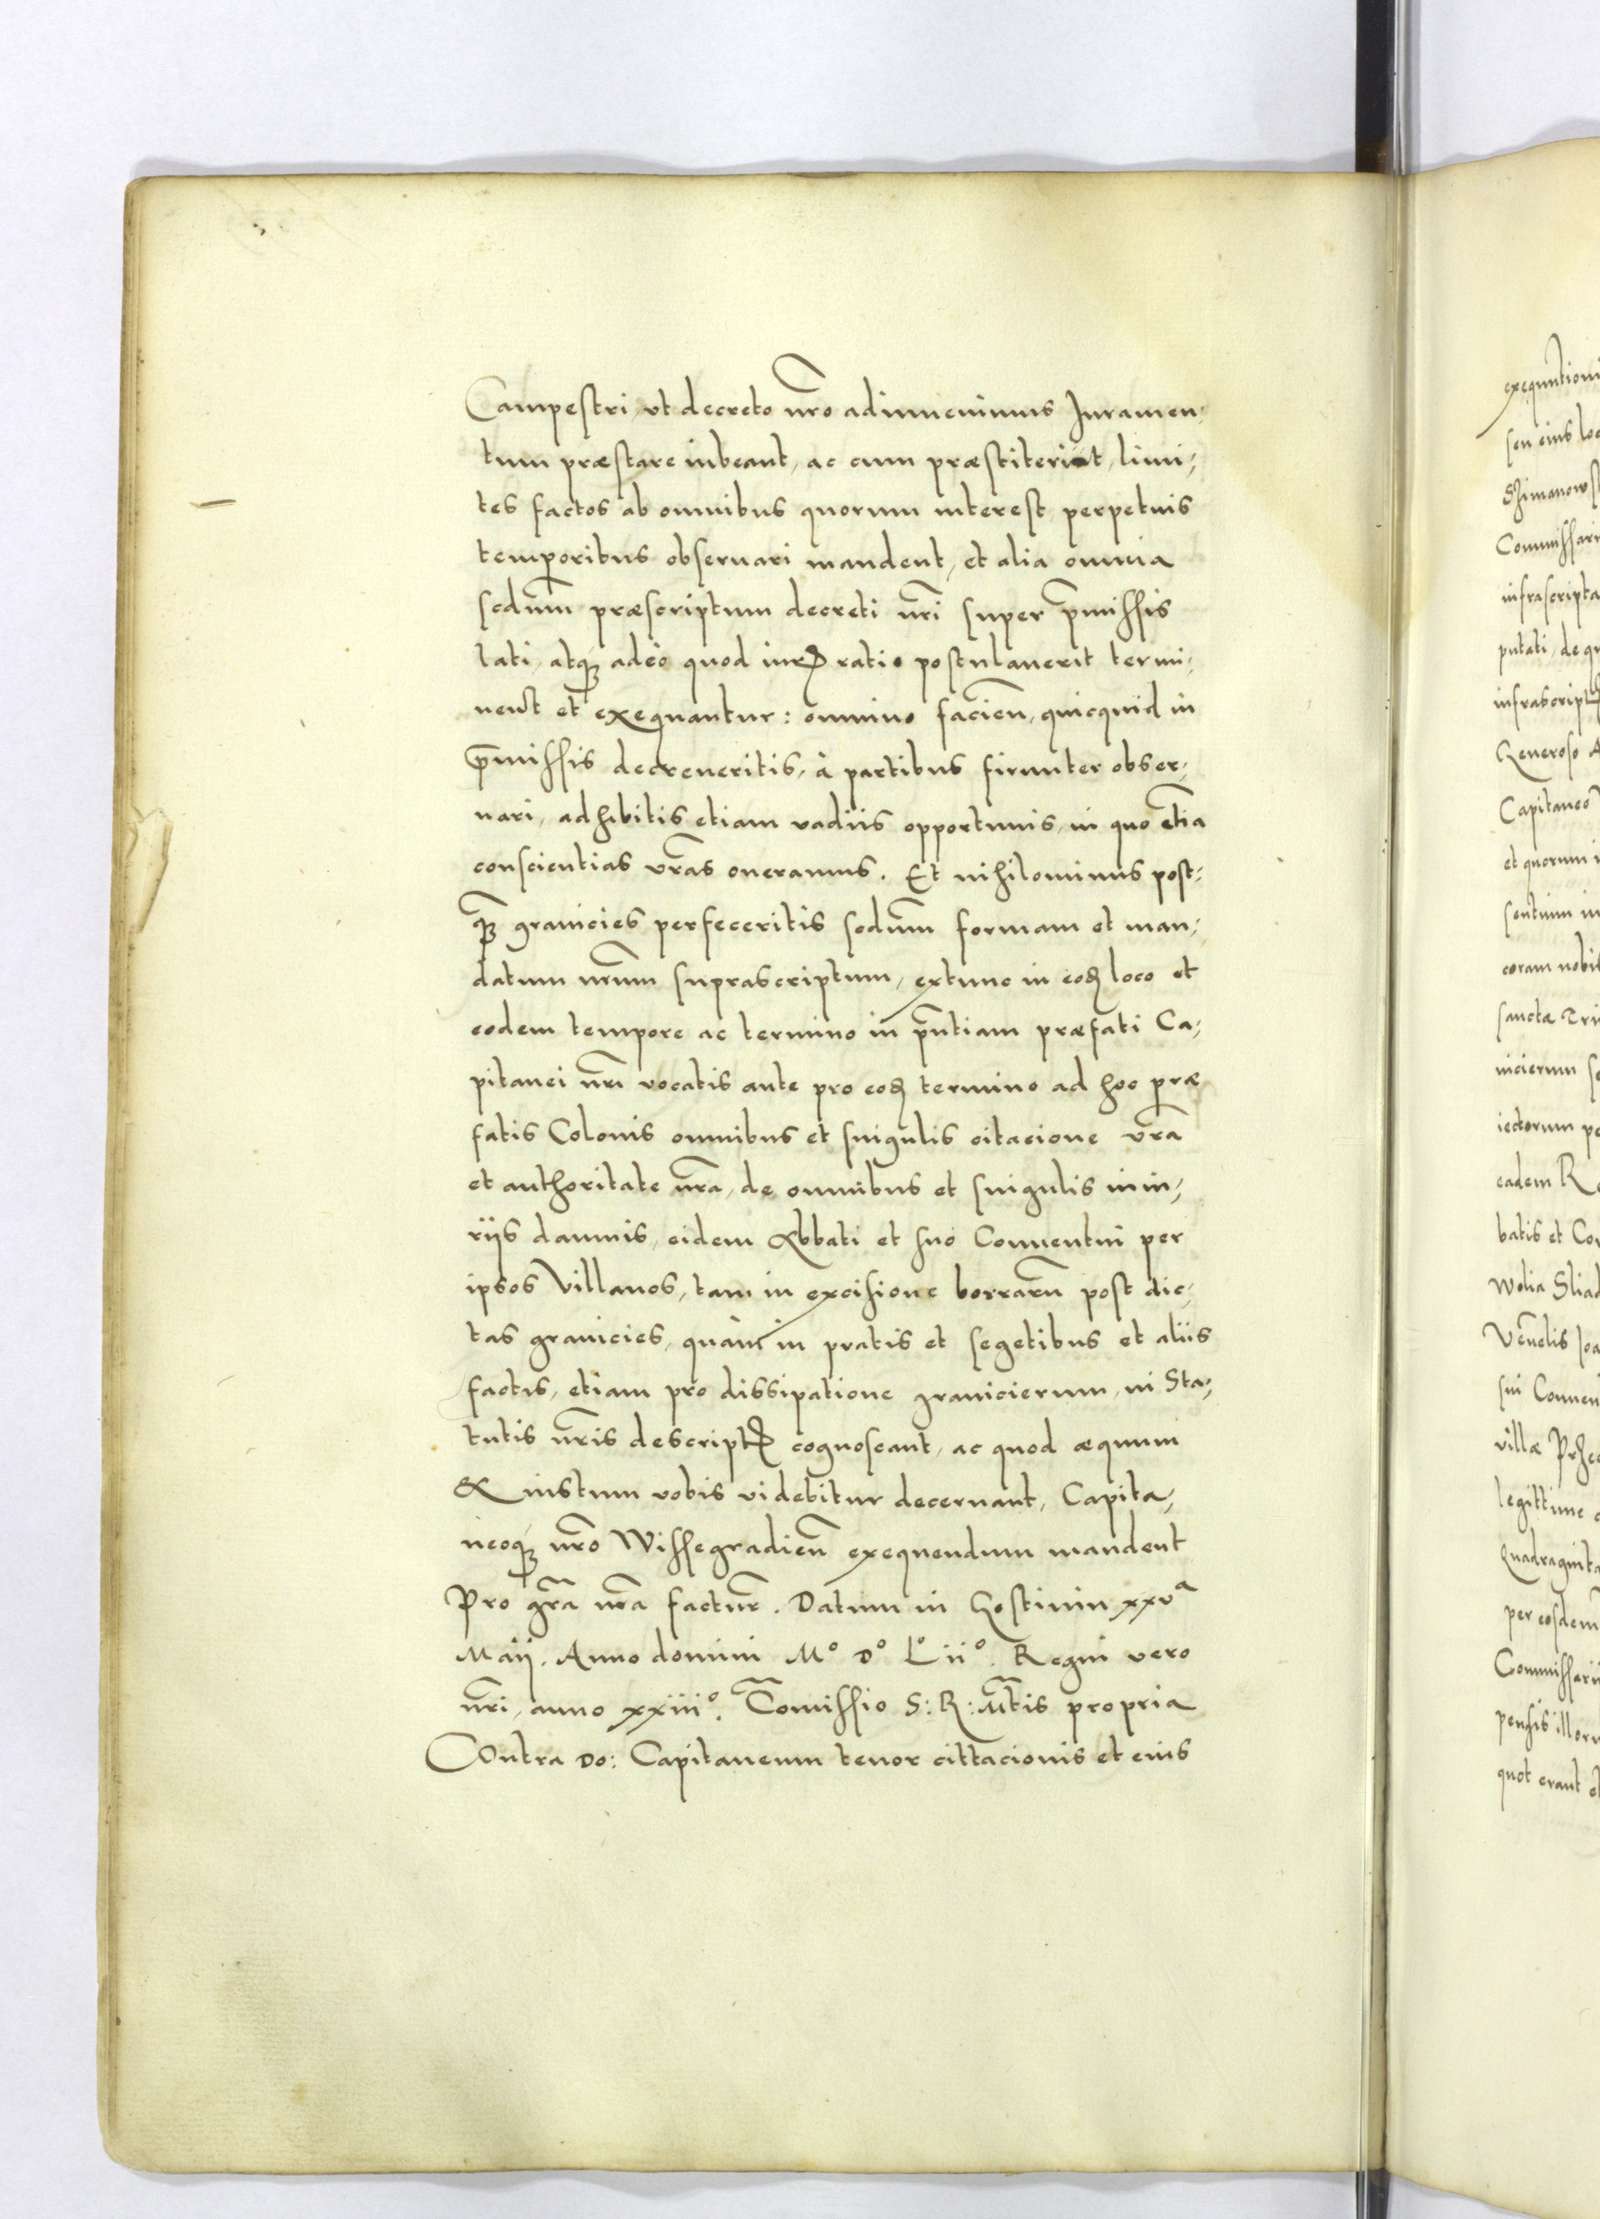 Campestri, vt decreto nr̃o adinuenimus Juramen-
tum præstare iubeant, ac cum præstiterint, limi-
tes factos ab omnibus quorum interest perpetuis
temporibus obseruari mandent, et alia omnia
scdum̃ præscriptum decreti nr̃i super p̃missis
lati, atqꝫ adeò quod iurꝭ ratio postulauerit termi-
nent et exequantur: omnino facien̄, quicquid in
p̃missis decreueritis, à partibus firmiter obser-
uari, adhibitis etiam vadiis opportunis, in quo etiā
conscientias vr̃as oneramus. Et nihilominus post-
qꝫ̃ granicies perfeceritis scdum̃ formam et man-
datum nrum̃ suprascriptum, extunc in eoꝫ loco et
eodem tempore ac termino in p̃ntiam præfati Ca-
pitanei nr̃i vocatis ante pro eoꝫ termino ad hoc præ
fatis Colonis omnibus et singulis citacione vr̃a
et authoritate nr̃a, de omnibus et singulis iniu-
rijs damnis, eidem Abbati et suo Conuentui per
ipsos Villanos, tam in excisione borrarũ post dic-
tas granicies, quàm in pratis et segetibus et aliis
factis, etiam pro dissipatione granicierum, in Sta-
tutis nr̃is descriptꝭ cognoscant, ac quod æquum
& iustum vobis videbitur decernant, Capita-
neoqꝫ nr̃o Wissegradien̄ exequendum mandent
Pro gr̃a nr̃a factur̃. Datum in Gostinin xxvᵃ
Maij. Anno domini Mº Dº Lº iiº. Regni vero
nr̃i, anno xxiiiº. Com̃issio S: R: Mt̃is propria
COntra Do: Capitaneum tenor cittacionis et eius
exequutioni
seu eius loc
Szimanowsk
Commissari
infrascripta
putati, de qu
infrascriptꝭ
Generoso A
Capitaneo
et quorum i
sentium in
coram nobil
sanctæ Tri
nicierum sc
iectorum pe
eadem Re
batis et Con
Wolia Sliad
Ven̄elis Joa
sui Conuen
villæ Przec
legittime c
Quadraginta
per eosdem
Commissarii
pensis illoru
quot erant et